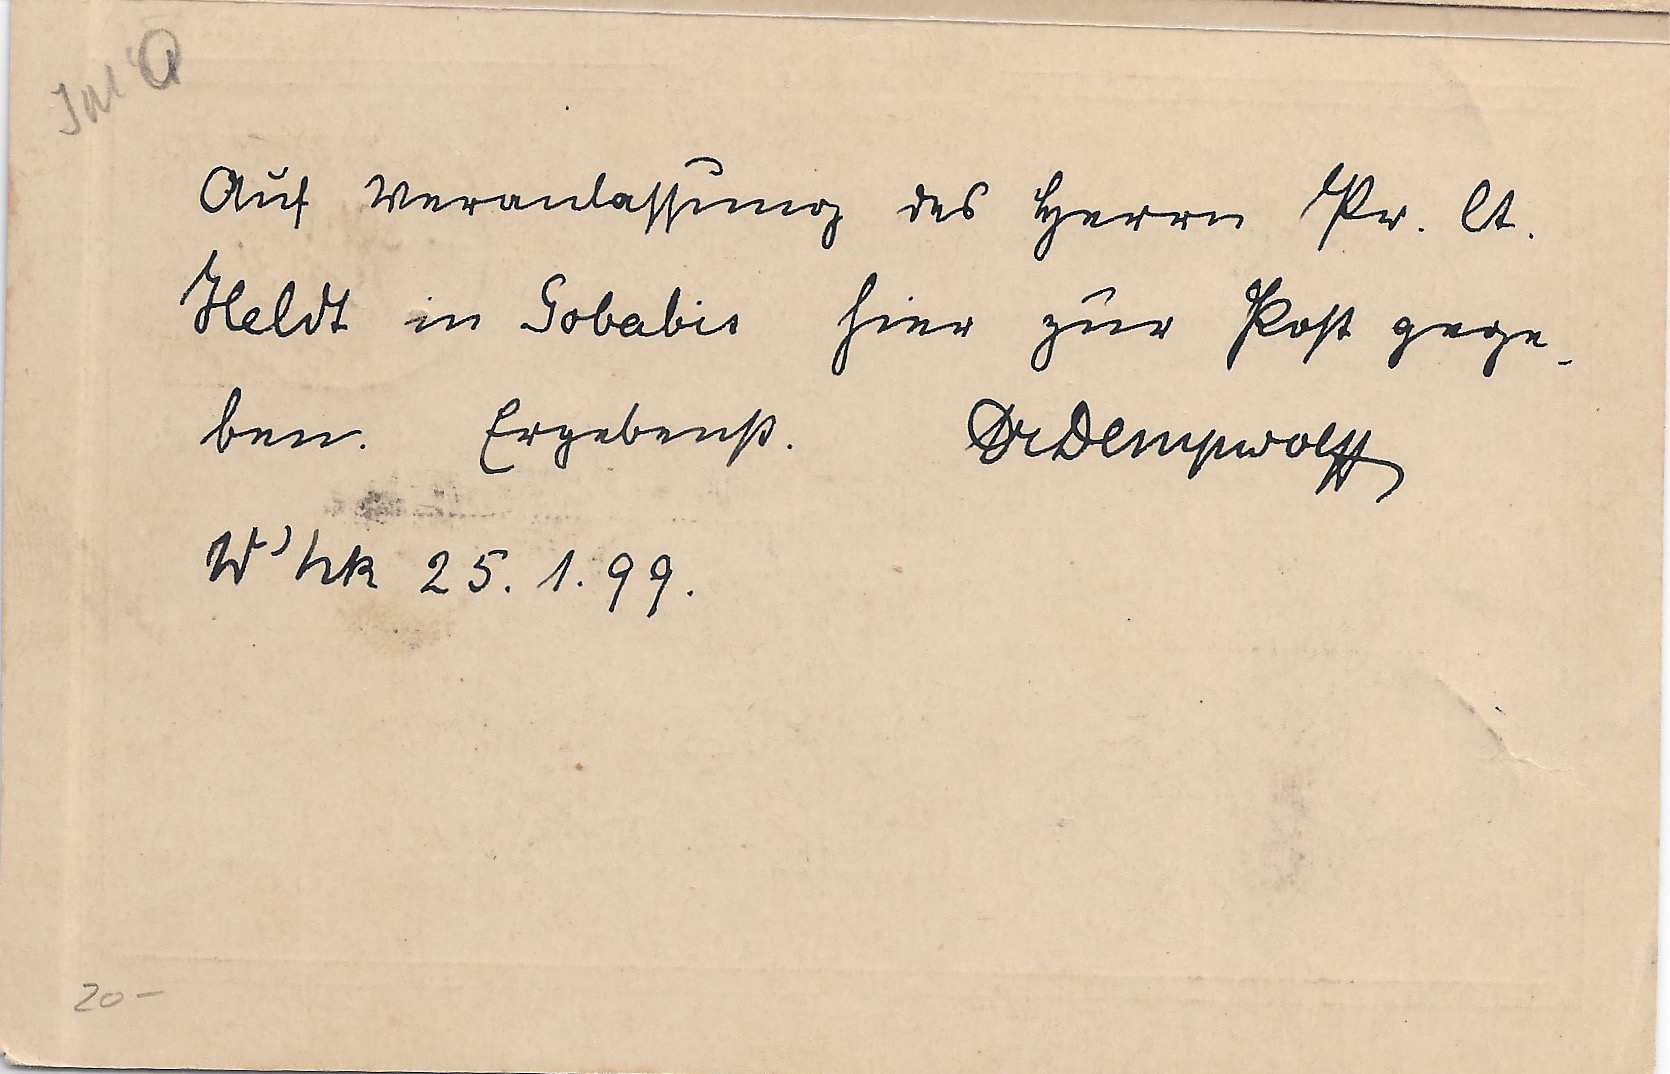 Auf Veranlassung des Herrn Pr. Lt.
Heldt in Gobabis hier zur Post gege-
ben. Ergebenst. Dr Dempwolff
W'hk 25. 1. 99.
20 –